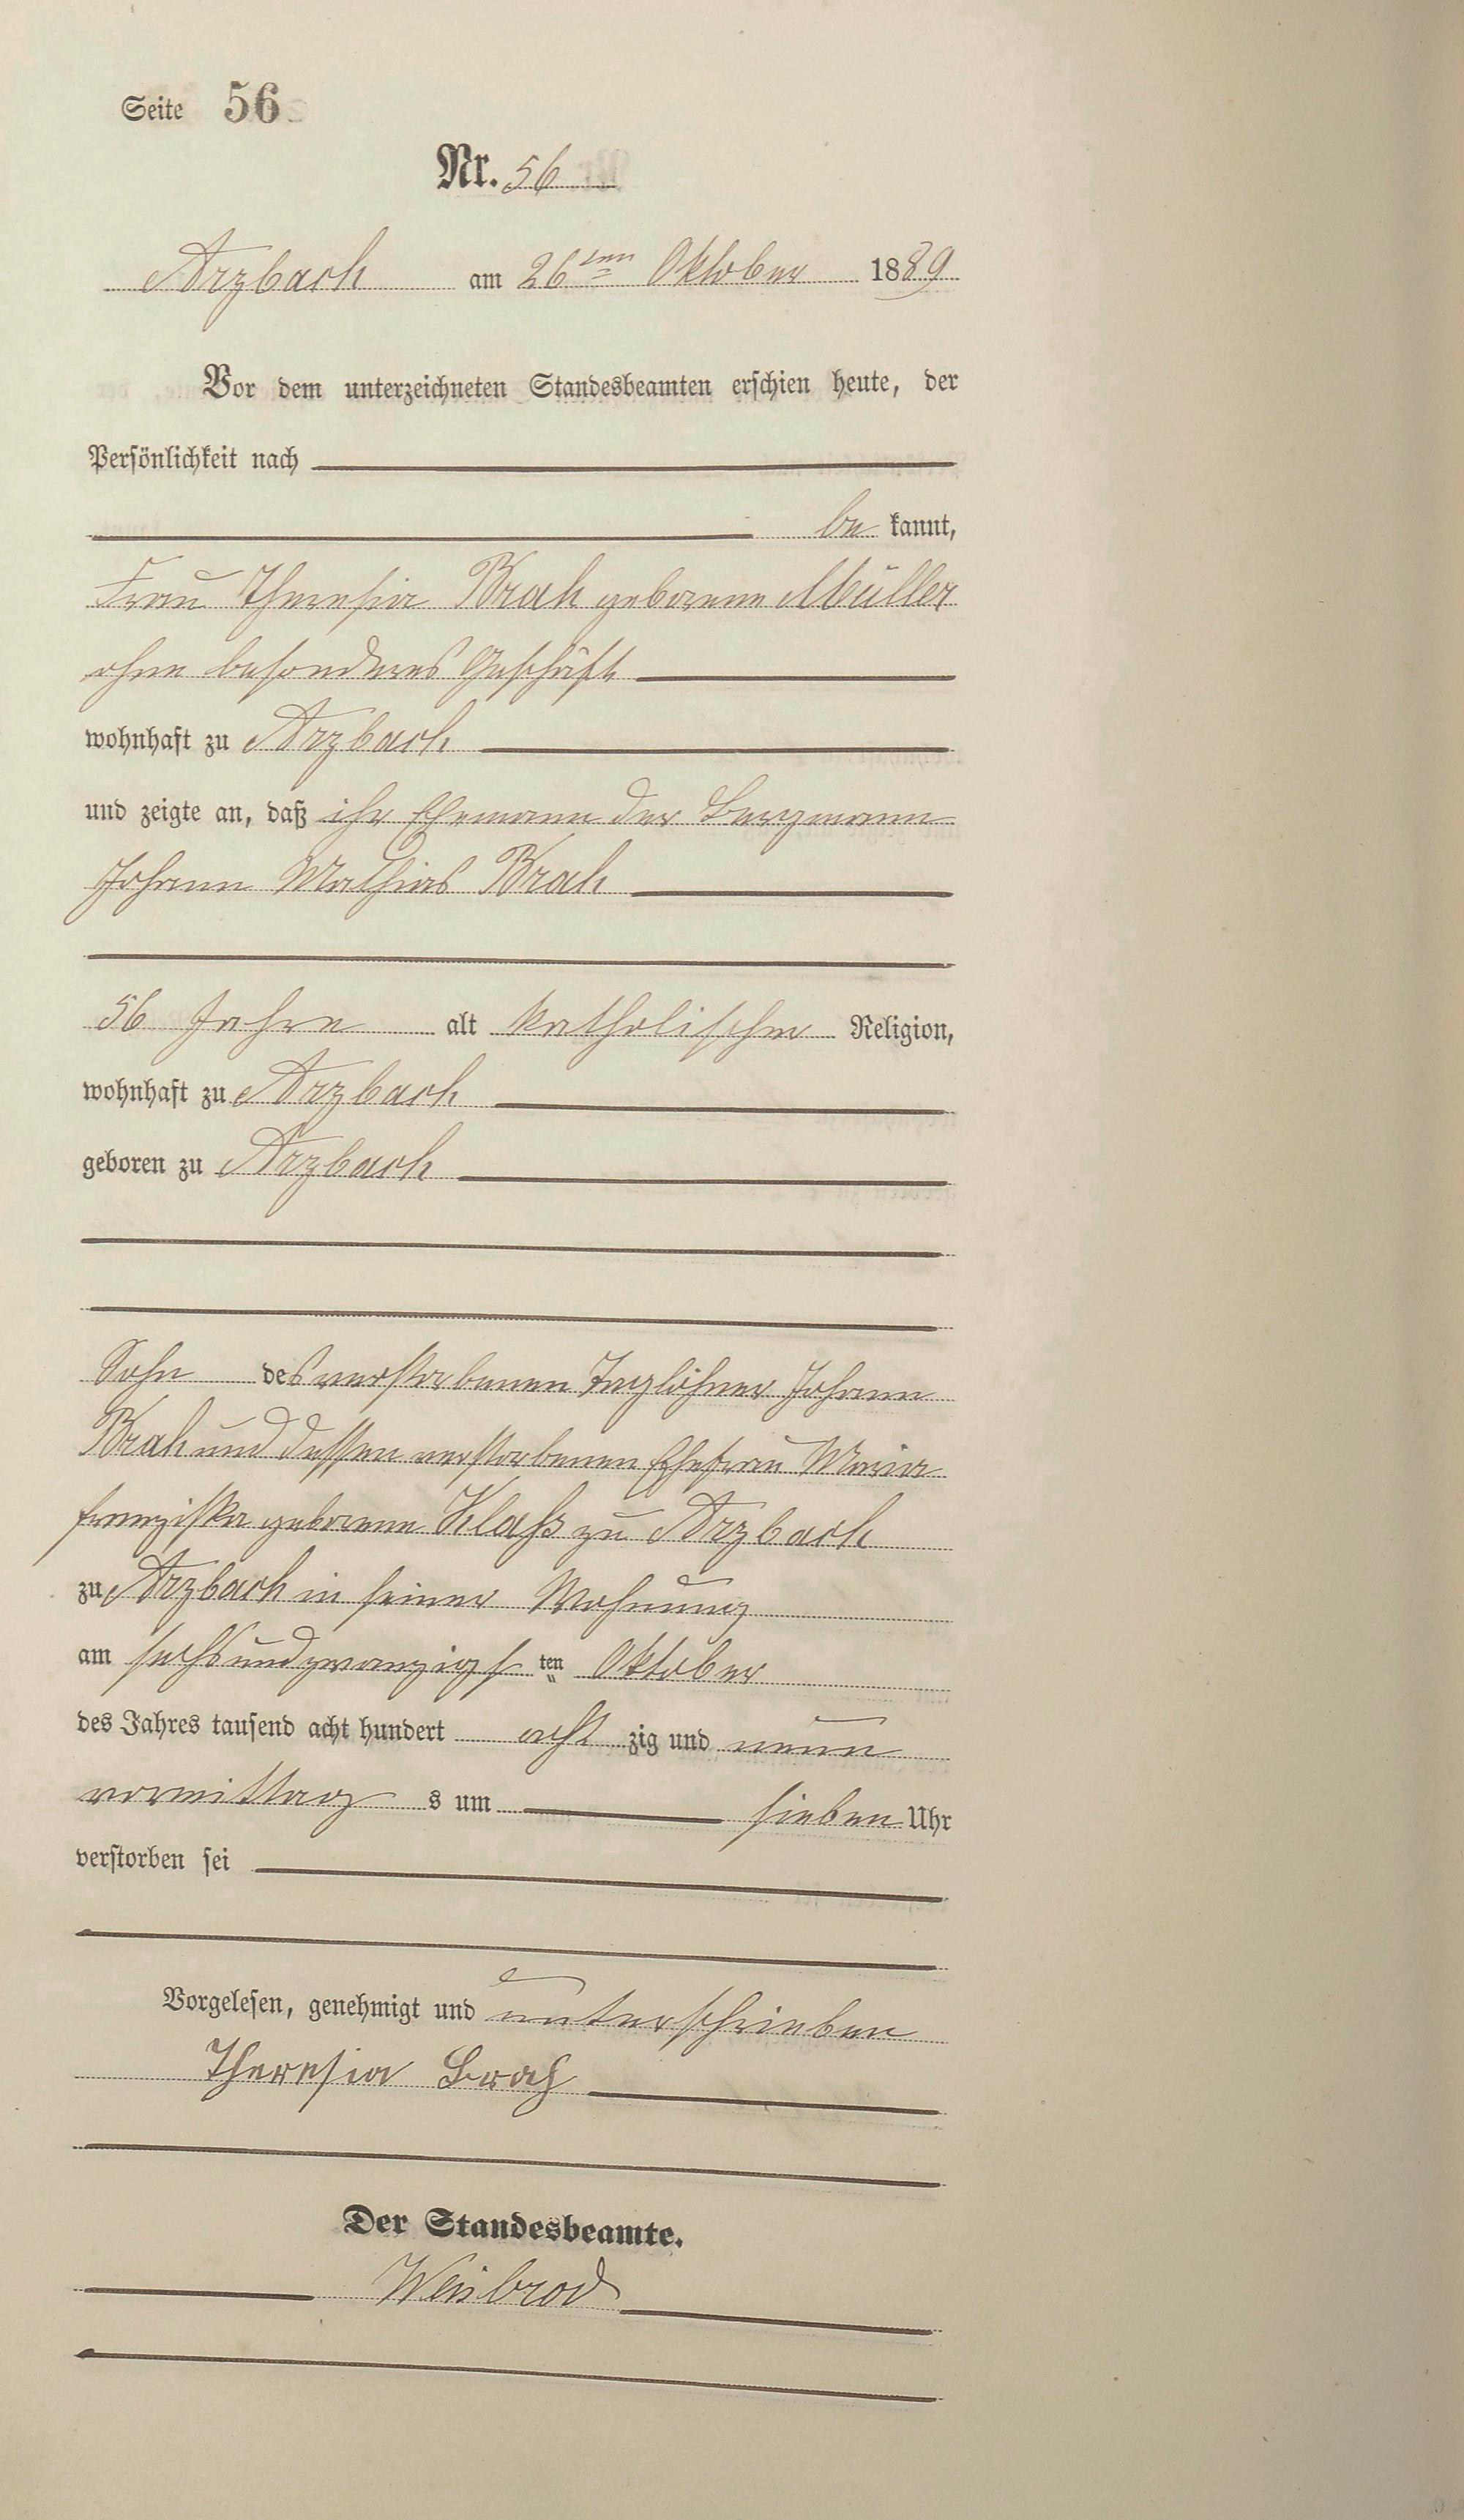 Seite 56
Nr. 56
Arzbach am 26ten Oktober 1889
Vor dem unterzeichneten Standesbeamten erschien heute, der
Persönlichkeit nach
be kannt,
Frau Theresia Brah geborene Müller
ohne besonderes Geschäft
wohnhaft zu Arzbach
und zeigte an, daß ihr Ehemann der Bergmann
Johann Mathias Brah
56 Jahre alt katholischer Religion,
wohnhaft zu Arzbach
geboren zu Arzbach
Sohn des verstorbenen Taglöhner Johann
Brah und dessen verstorbenen Ehefrau Maria
Franziska geborene Klaß zu Arzbach
zu Arzbach in seiner Wohnung
am sechsundzwanzigsten Oktober
des Jahres tausend acht hundert acht zig und neun
vormittag s um sieben Uhr
verstorben sei
Vorgelesen, genehmigt und unterschrieben
Theresia Brah
Der Standesbeamte.
Weisbrod